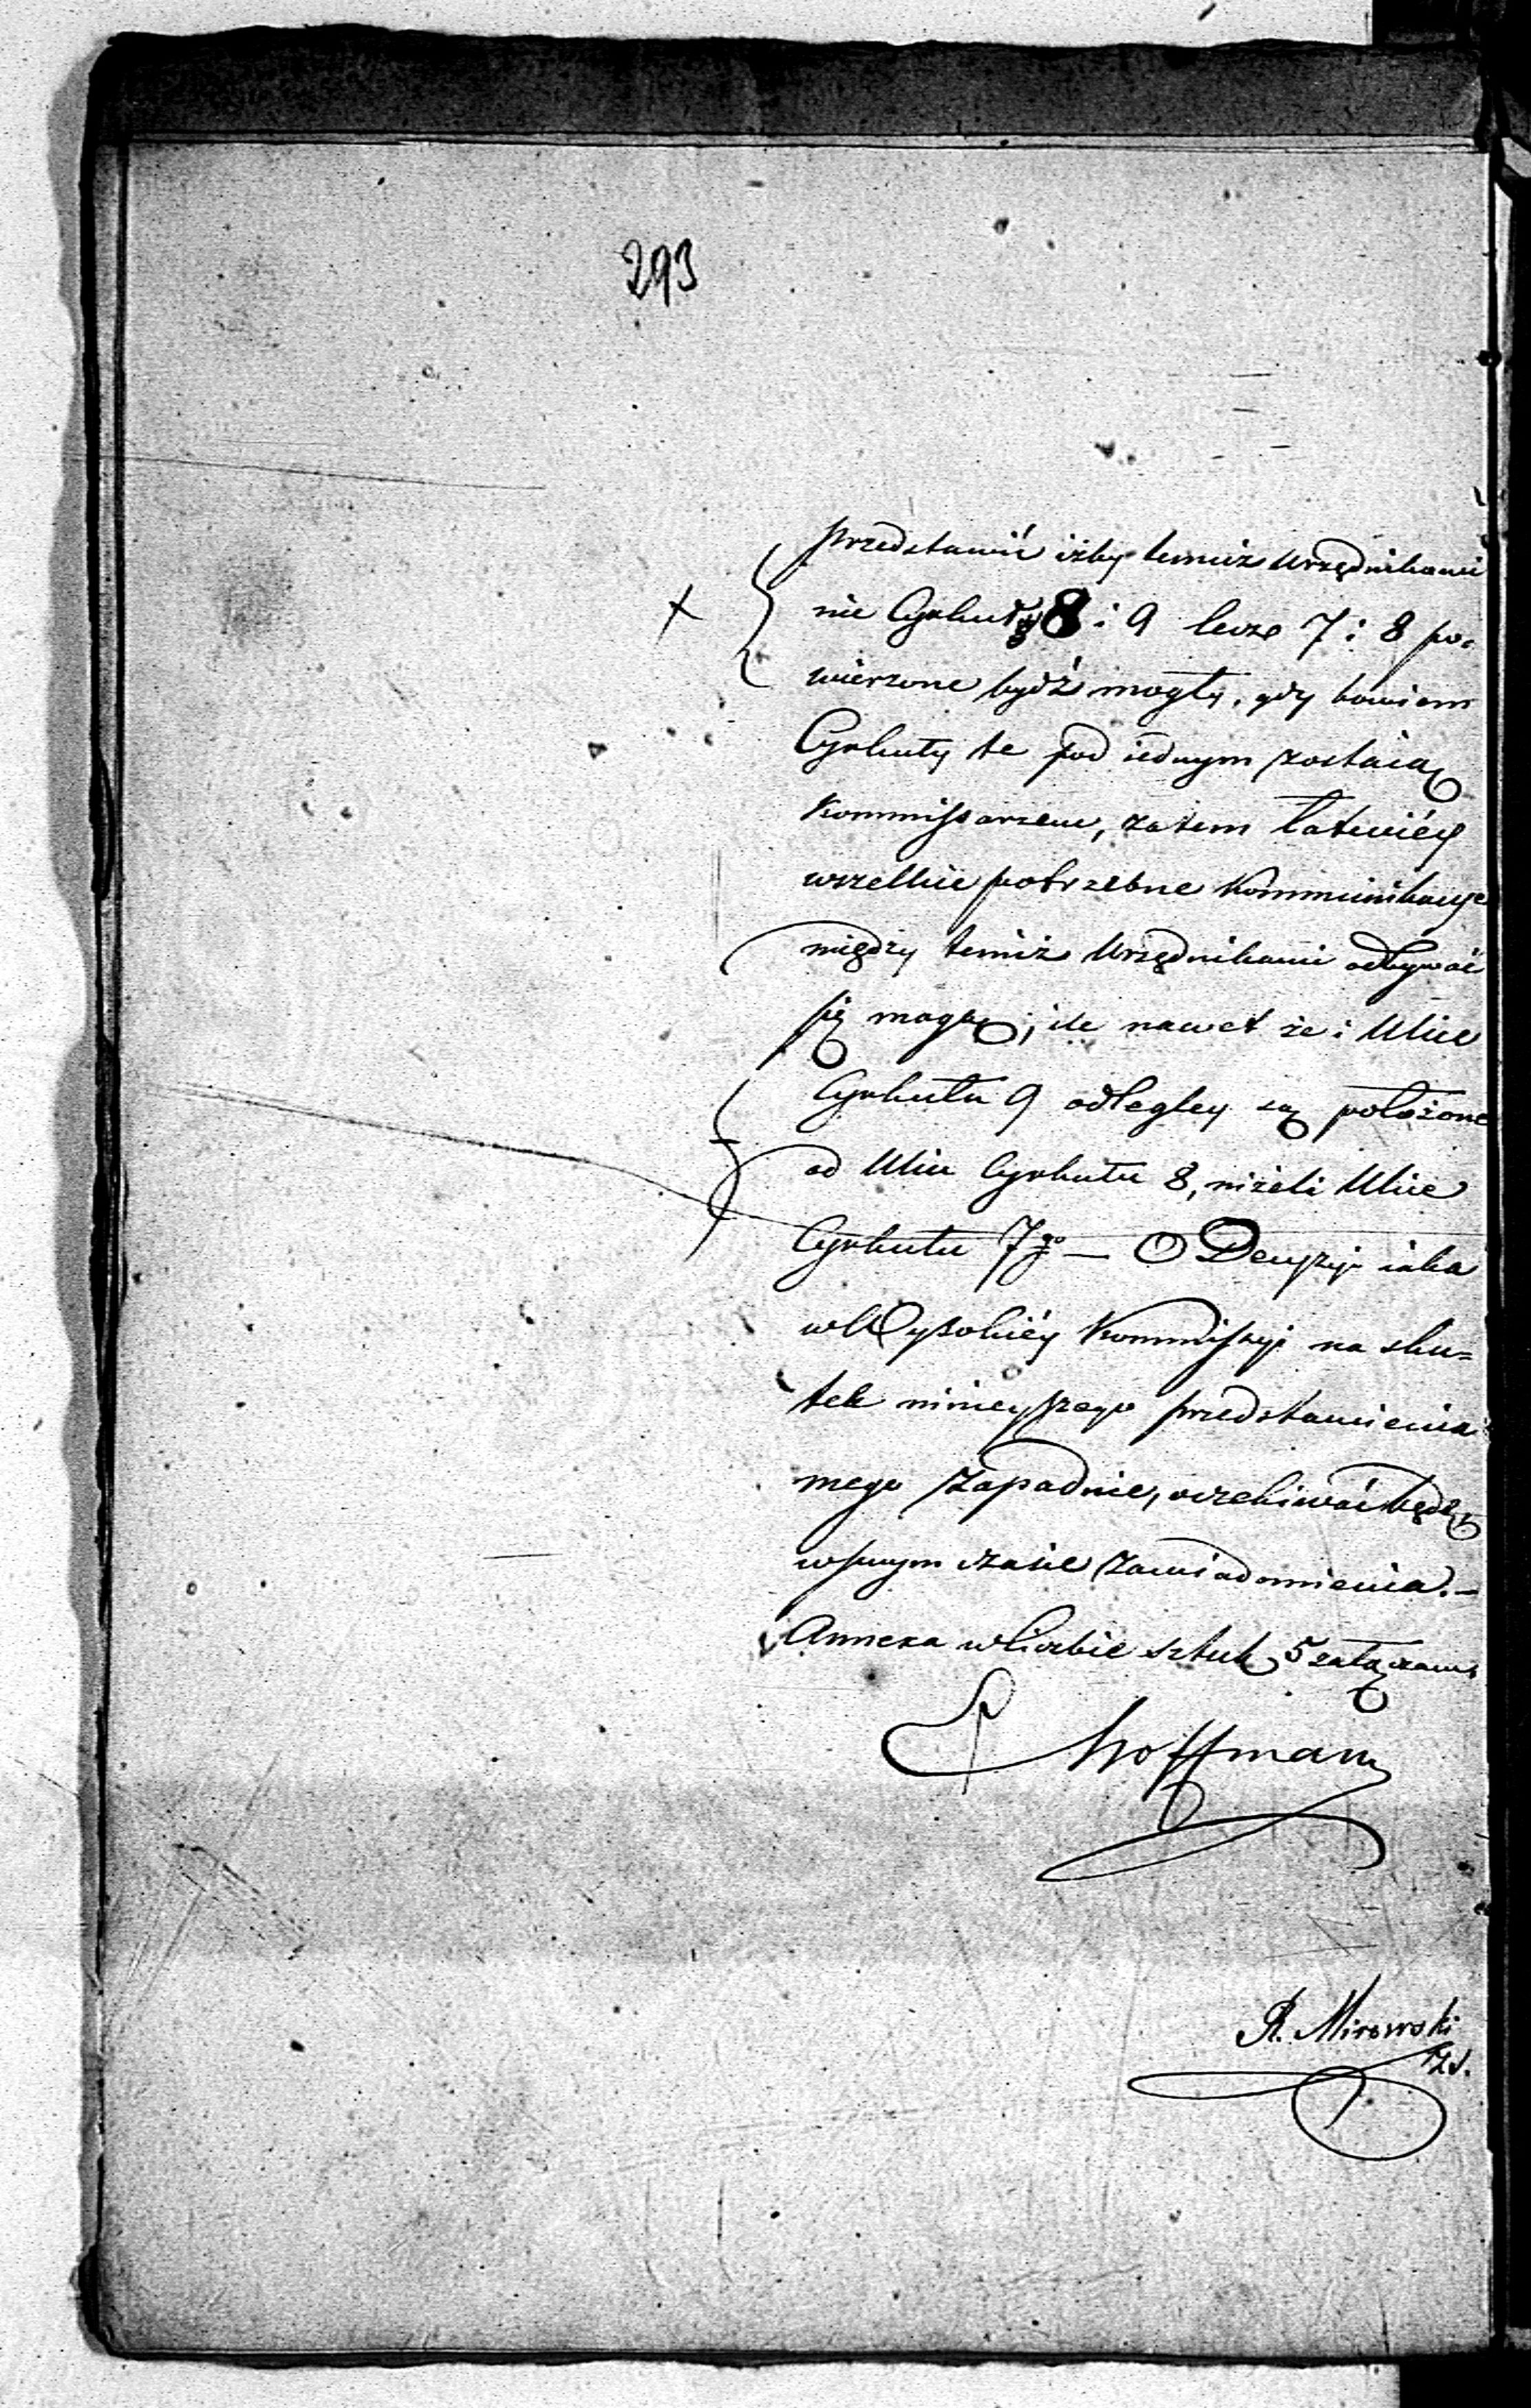 293
przedstawić iżby temiż Urzędnikami
nie Cyrkuły 8 i 9 lecz 7 i 8 po=
wierzone bydź mogły, gdy bowiem
Cyrkuły te pod iednym zostaią
Kommissarzem, zatem łatwiéy
wszelkie potrzebne Kommunikacye
między temiż Urzędnikami odbywać
się mogą; ile nawet że i Ulice
Cyrkułu 9 odległey są położone
od Ulic Cyrkułu 8, niżeli Ulice
Cyrkułu 7go — O Decyzyi iaka
w Wysokiéy Kommissyi na sku=
tek ninieyszego przedstawienia
mego zapadnie, oczekiwać będę
w swym czasie zawiadomienia. —
Annexa w liczbie sztuk 5 załączam
Hoffman
R. Mirowski